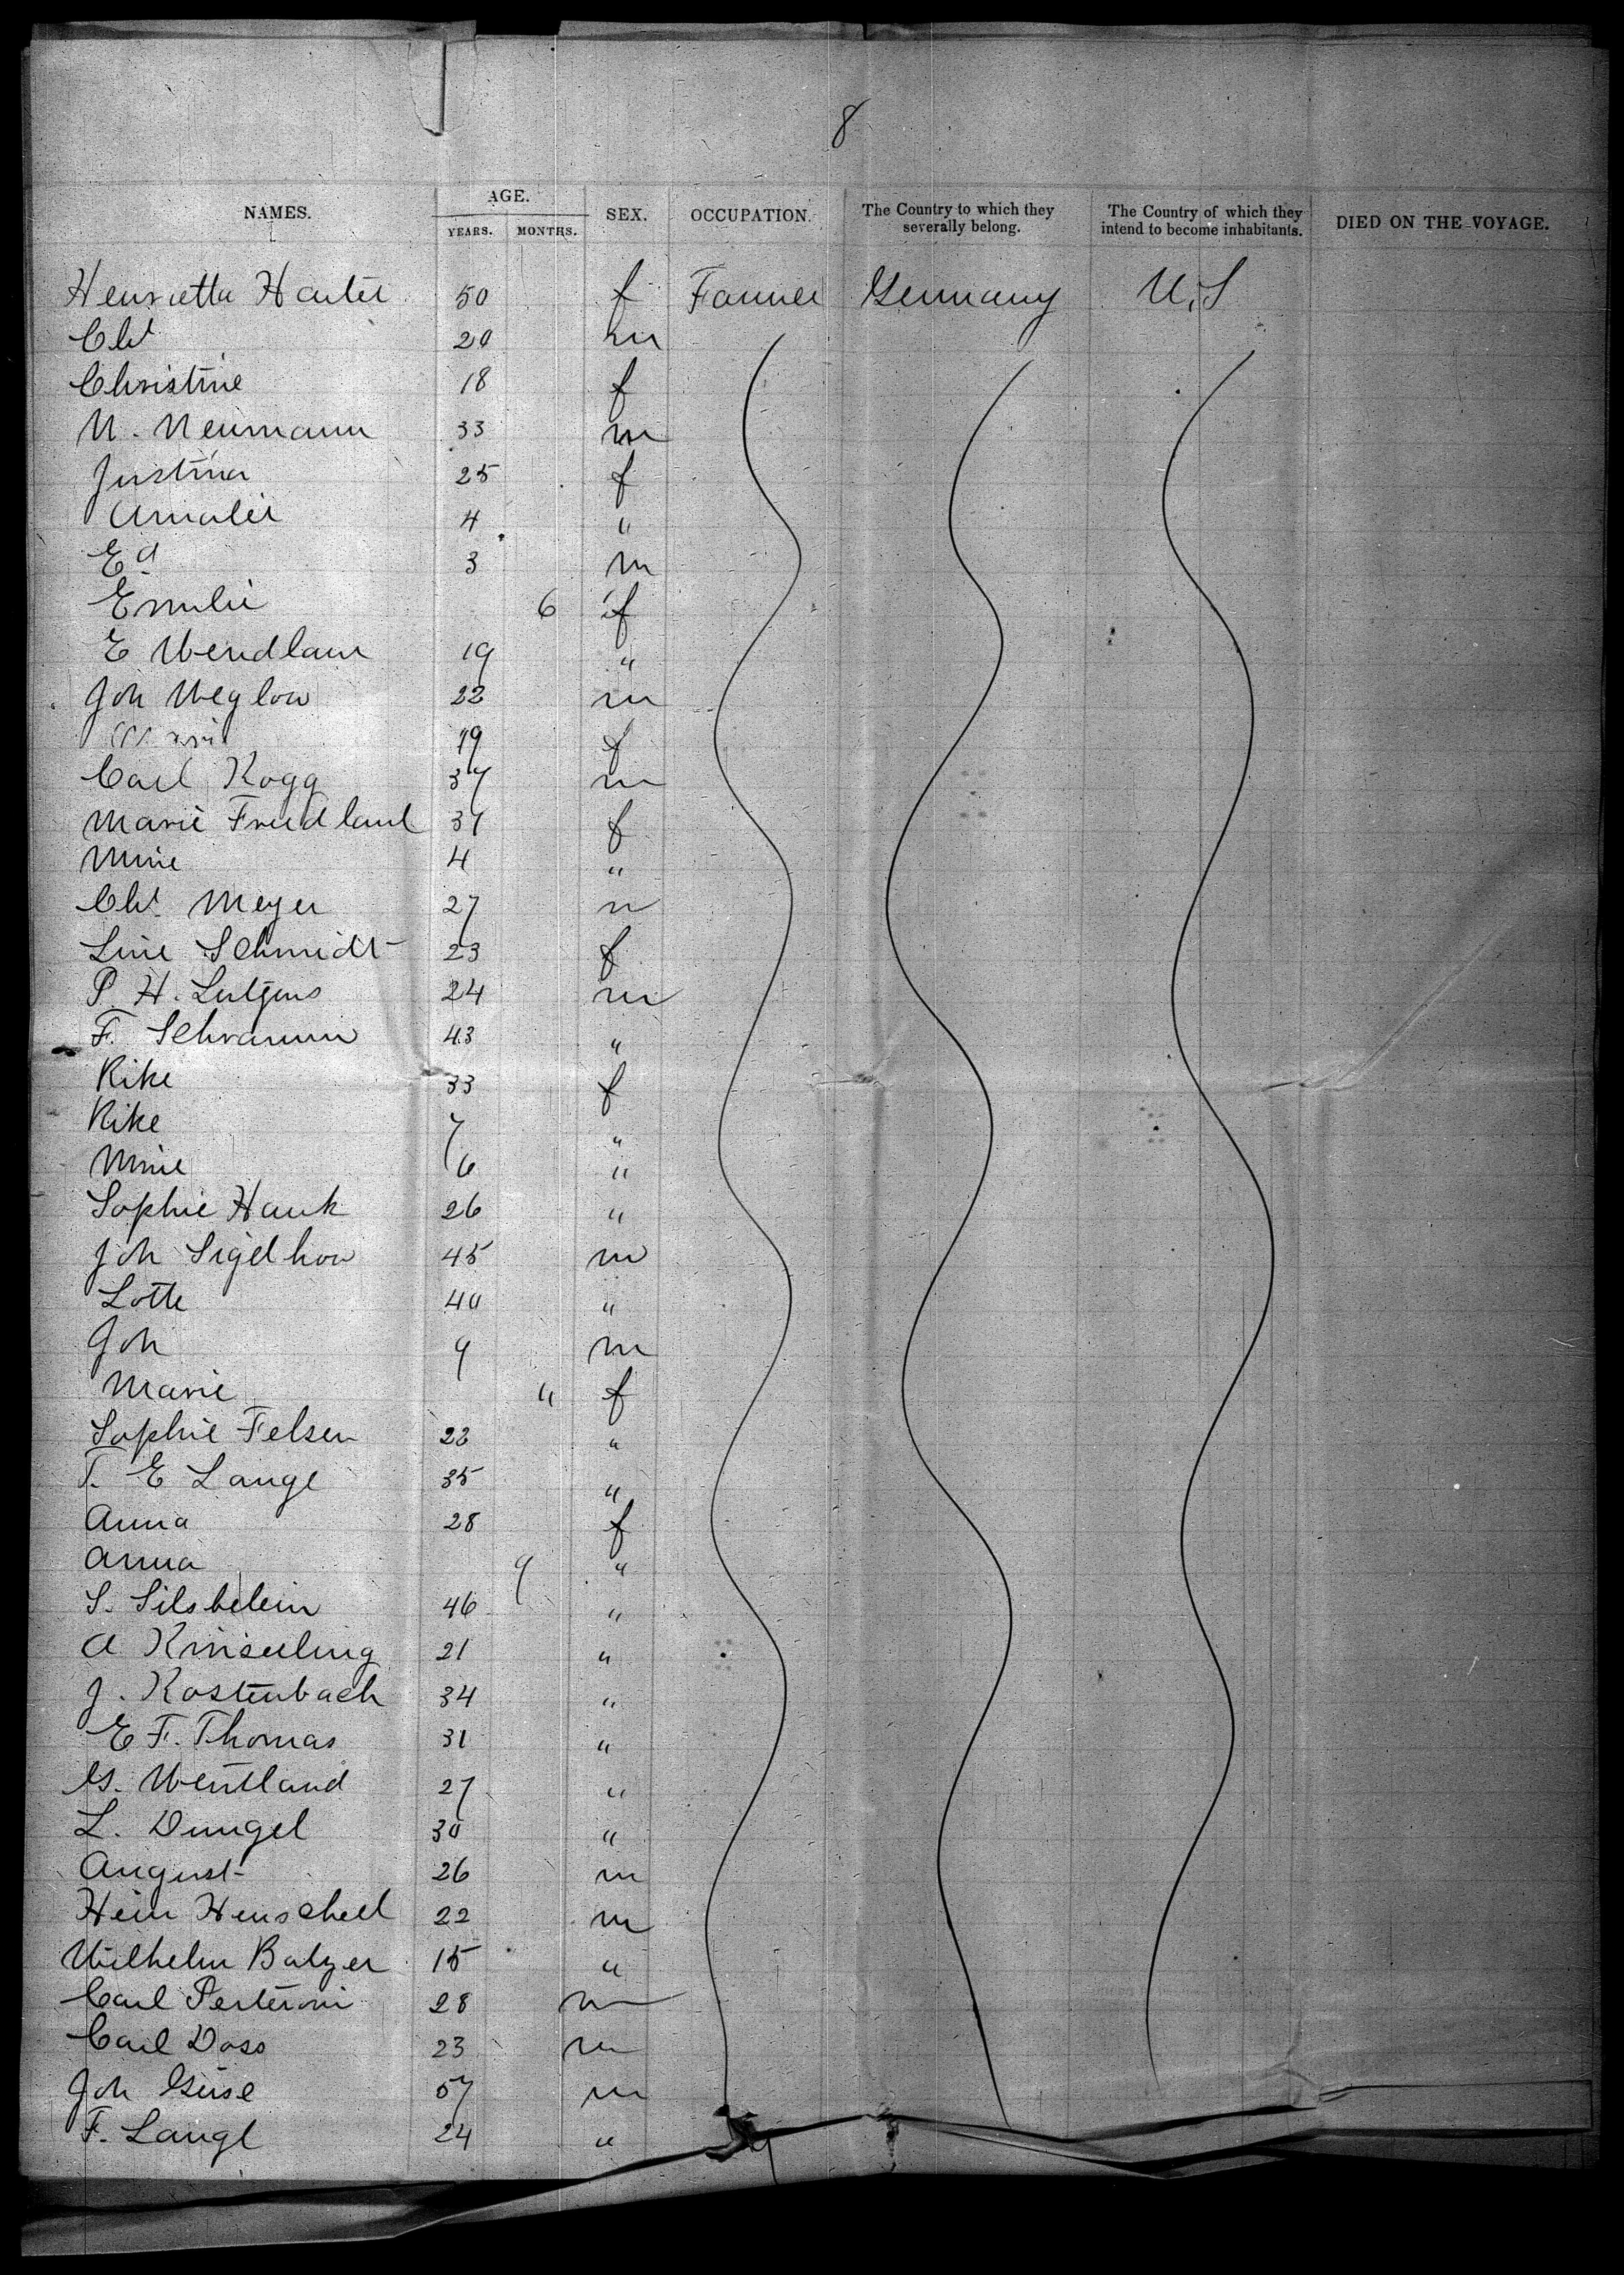 8
NAMES. AGE. YEARS. MONTHS. SEX. OCCUPATION. The Country to which they severally belong. The Country of which they intend to become inhabitants. DIED ON THE VOYAGE.
Henrietta Harter 50 f Farmer Germany U.S
Cht 20 m
Christine 18 f
N. Neumann 33 m
Justina 25 f
Amalie 4 "
Ed 3 m
Emilie 6 f
E Wendlam 19 "
Joh Weglow 22 m
19 f
Carl Kogg 37 m
Marie Friedland 37 f
Mine 4 "
Cht Meyer 27 m
Line Schmidt 23 f
P. H. Lutjens 24 m
F. Schramm 43 "
Rike 33 f
Rike 7 "
Mine 6 "
Sophie Hank 26 "
Joh Sigelhow 45 m
Lotte 40 "
Joh 9 m
Marie " f
Sophie Felsen 22 "
T. E Lange 35 "
Anna 28 f
Anna 9 "
S. Silsbelein 46 "
A Kinseling 21 "
J. Kostenbach 34 "
E F. Thomas 31 "
G. Wentland 27 "
L. Dungel 30 "
August 26 m
Hein Henschell 22 m
Wilhelm Balzer 15 "
Carl 28 m
Carl Doss 23 m
Joh Guse 57 m
F. Lange 24 "